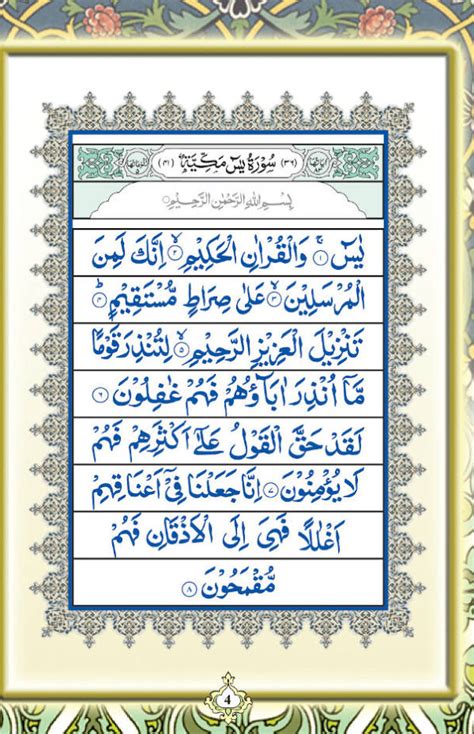 سُوْرَةُ يٰسٓ مَكِّيَّةٌ (٣٦) (٤١)
بِسْمِ اللهِ الرَّحْمٰنِ الرَّحِيْمِ
يٰسٓ ۚ﴿١﴾ وَالْقُرْاٰنِ الْحَكِيْمِ ۙ﴿٢﴾ اِنَّكَ لَمِنَ
الْمُرْسَلِيْنَ ۙ﴿٣﴾ عَلٰى صِرَاطٍ مُّسْتَقِيْمٍ ؕ﴿٤﴾
تَنْزِيْلَ الْعَزِيْزِ الرَّحِيْمِ ۙ﴿٥﴾ لِتُنْذِرَ قَوْمًا
مَّاۤ اُنْذِرَ اٰبَآؤُهُمْ فَهُمْ غٰفِلُوْنَ ﴿٦﴾
لَقَدْ حَقَّ الْقَوْلُ عَلٰۤى اَكْثَرِهِمْ فَهُمْ
لَا يُؤْمِنُوْنَ ﴿٧﴾ اِنَّا جَعَلْنَا فِىْۤ اَعْنَاقِهِمْ
اَغْلٰلًا فَهِىَ اِلَى الْاَذْقَانِ فَهُمْ
مُّقْمَحُوْنَ ﴿٨﴾
4